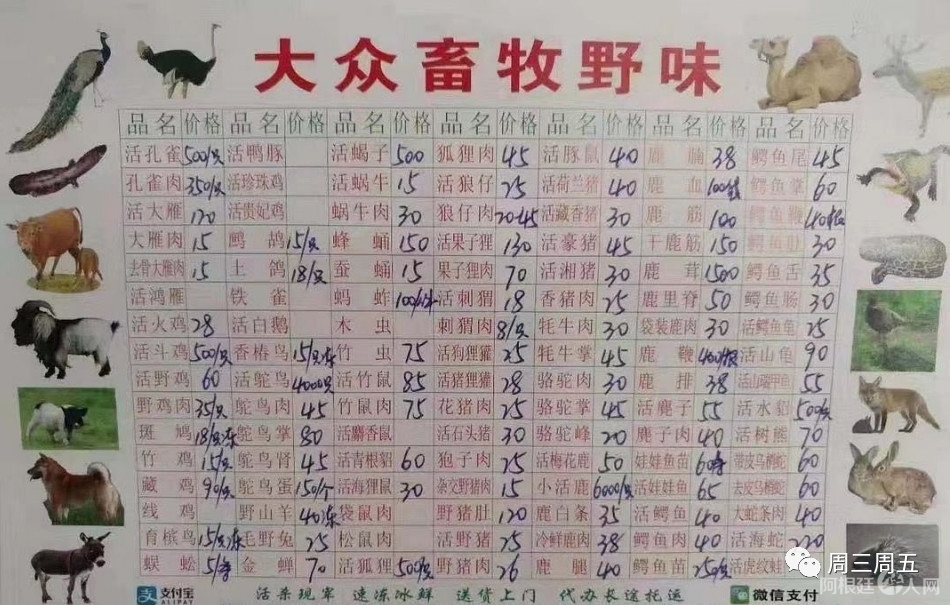 大众畜牧野味
品名 价格 品名 价格 品名 价格 品名 价格 品名 价格 品名 价格 品名
活孔雀 500/只 活鸭豚 活蝎子 500 狐狸肉 45 活豚鼠 40 鹿脯 38 鳄鱼尾 45
孔雀肉 350/只 活珍珠鸡 活蜗牛 15 活狼仔 25 活荷兰猪 40 鹿血 鳄鱼掌 60
活大雁 120 活贵妃鸡 蜗牛肉 30 狼仔肉 20-45 活藏香猪 30 鹿筋 100 鳄鱼鞭
大雁肉 15 鹧鸪 15/只 蜂蛹 150 活果子狸 130 活豪猪 45 干鹿筋 150 鳄鱼肚 30
去骨大雁肉 15 土鸽 18/只 蚕蛹 15 果子狸肉 70 活湘猪 30 鹿茸 1500 鳄鱼舌 35
活鸿雁 铁雀 蚂蚱 活刺猬 18 香猪肉 25 鹿里脊 50 鳄鱼肠 30
活火鸡 28 活白鹅 木虫 刺猬肉 8/只 牦牛肉 30 袋装鹿肉 30 活鳄鱼龟 25
活斗鸡 500/只 香椿鸟 15/只冻 竹虫 75 活狗狸獾 25 牦牛掌 45 鹿鞭 活山龟 90
活野鸡 60 活鸵鸟 4000只 活竹鼠 85 活猪狸獾 28 骆驼肉 30 鹿排 38 55
野鸡肉 35/只 鸵鸟肉 45 竹鼠肉 75 花猪肉 25 骆驼掌 45 活麂子 55 活水貂 500/只
斑鸠 18/只冻 鸵鸟掌 80 活麝香鼠 活石头猪 30 骆驼峰 20 麂子肉 40 活树熊 70
竹鸡 15/只 鸵鸟肾 45 活青根貂 60 狍子肉 25 活梅花鹿 50 娃娃鱼苗 带皮乌梢蛇 60
藏鸡 90/只 鸵鸟蛋 150/个 活海狸鼠 30 杂交野猪肉 15 小活鹿 6000/只 活娃娃鱼 65 去皮乌梢蛇 60
线鸡 野山羊 40冻 袋鼠肉 野猪肚 120 鹿白条 35 活鳄鱼 40 大蛇条肉 40
育槟鸟 15/只冻 毛野兔 25 松鼠肉 活野猪 25 冷鲜鹿肉 38 鳄鱼肉 40 活海蛇 220
蜈蚣 金蝉 70 活狐狸 500/只 野猪肉 26 鹿腿 40 鳄鱼苗 250/只 活虎纹蛙
支付宝 ALIPAY 活杀现宰 速冻冰鲜 送货上门 代办长途托运 微信支付
周三周五
阿根廷 人网